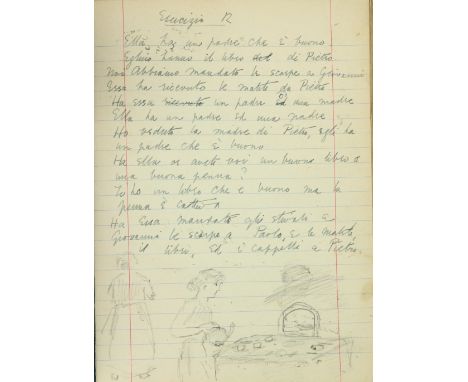 Esercizio R
Ella ha un padre che è buono
Eglino hanno il libro di Pietro
Noi Abbiamo mandato le scarpe a Giovanni
Essa ha ricevuto le matite da Pietro
Ha essa ricevuto un padre ed una madre
Ella ha un padre ed una madre
Ho veduto la madre di Pietro, egli ha
un padre che è buono
Ha Ella or avete voi un buono libro o
una buona penna?
Io ho un libro che e buono ma la
penna è
Ha Essa mandato gli stivali e
Giovanni le scarpe a Paolo, e le matite,
il libri, Ed i cappelli a Pietro.